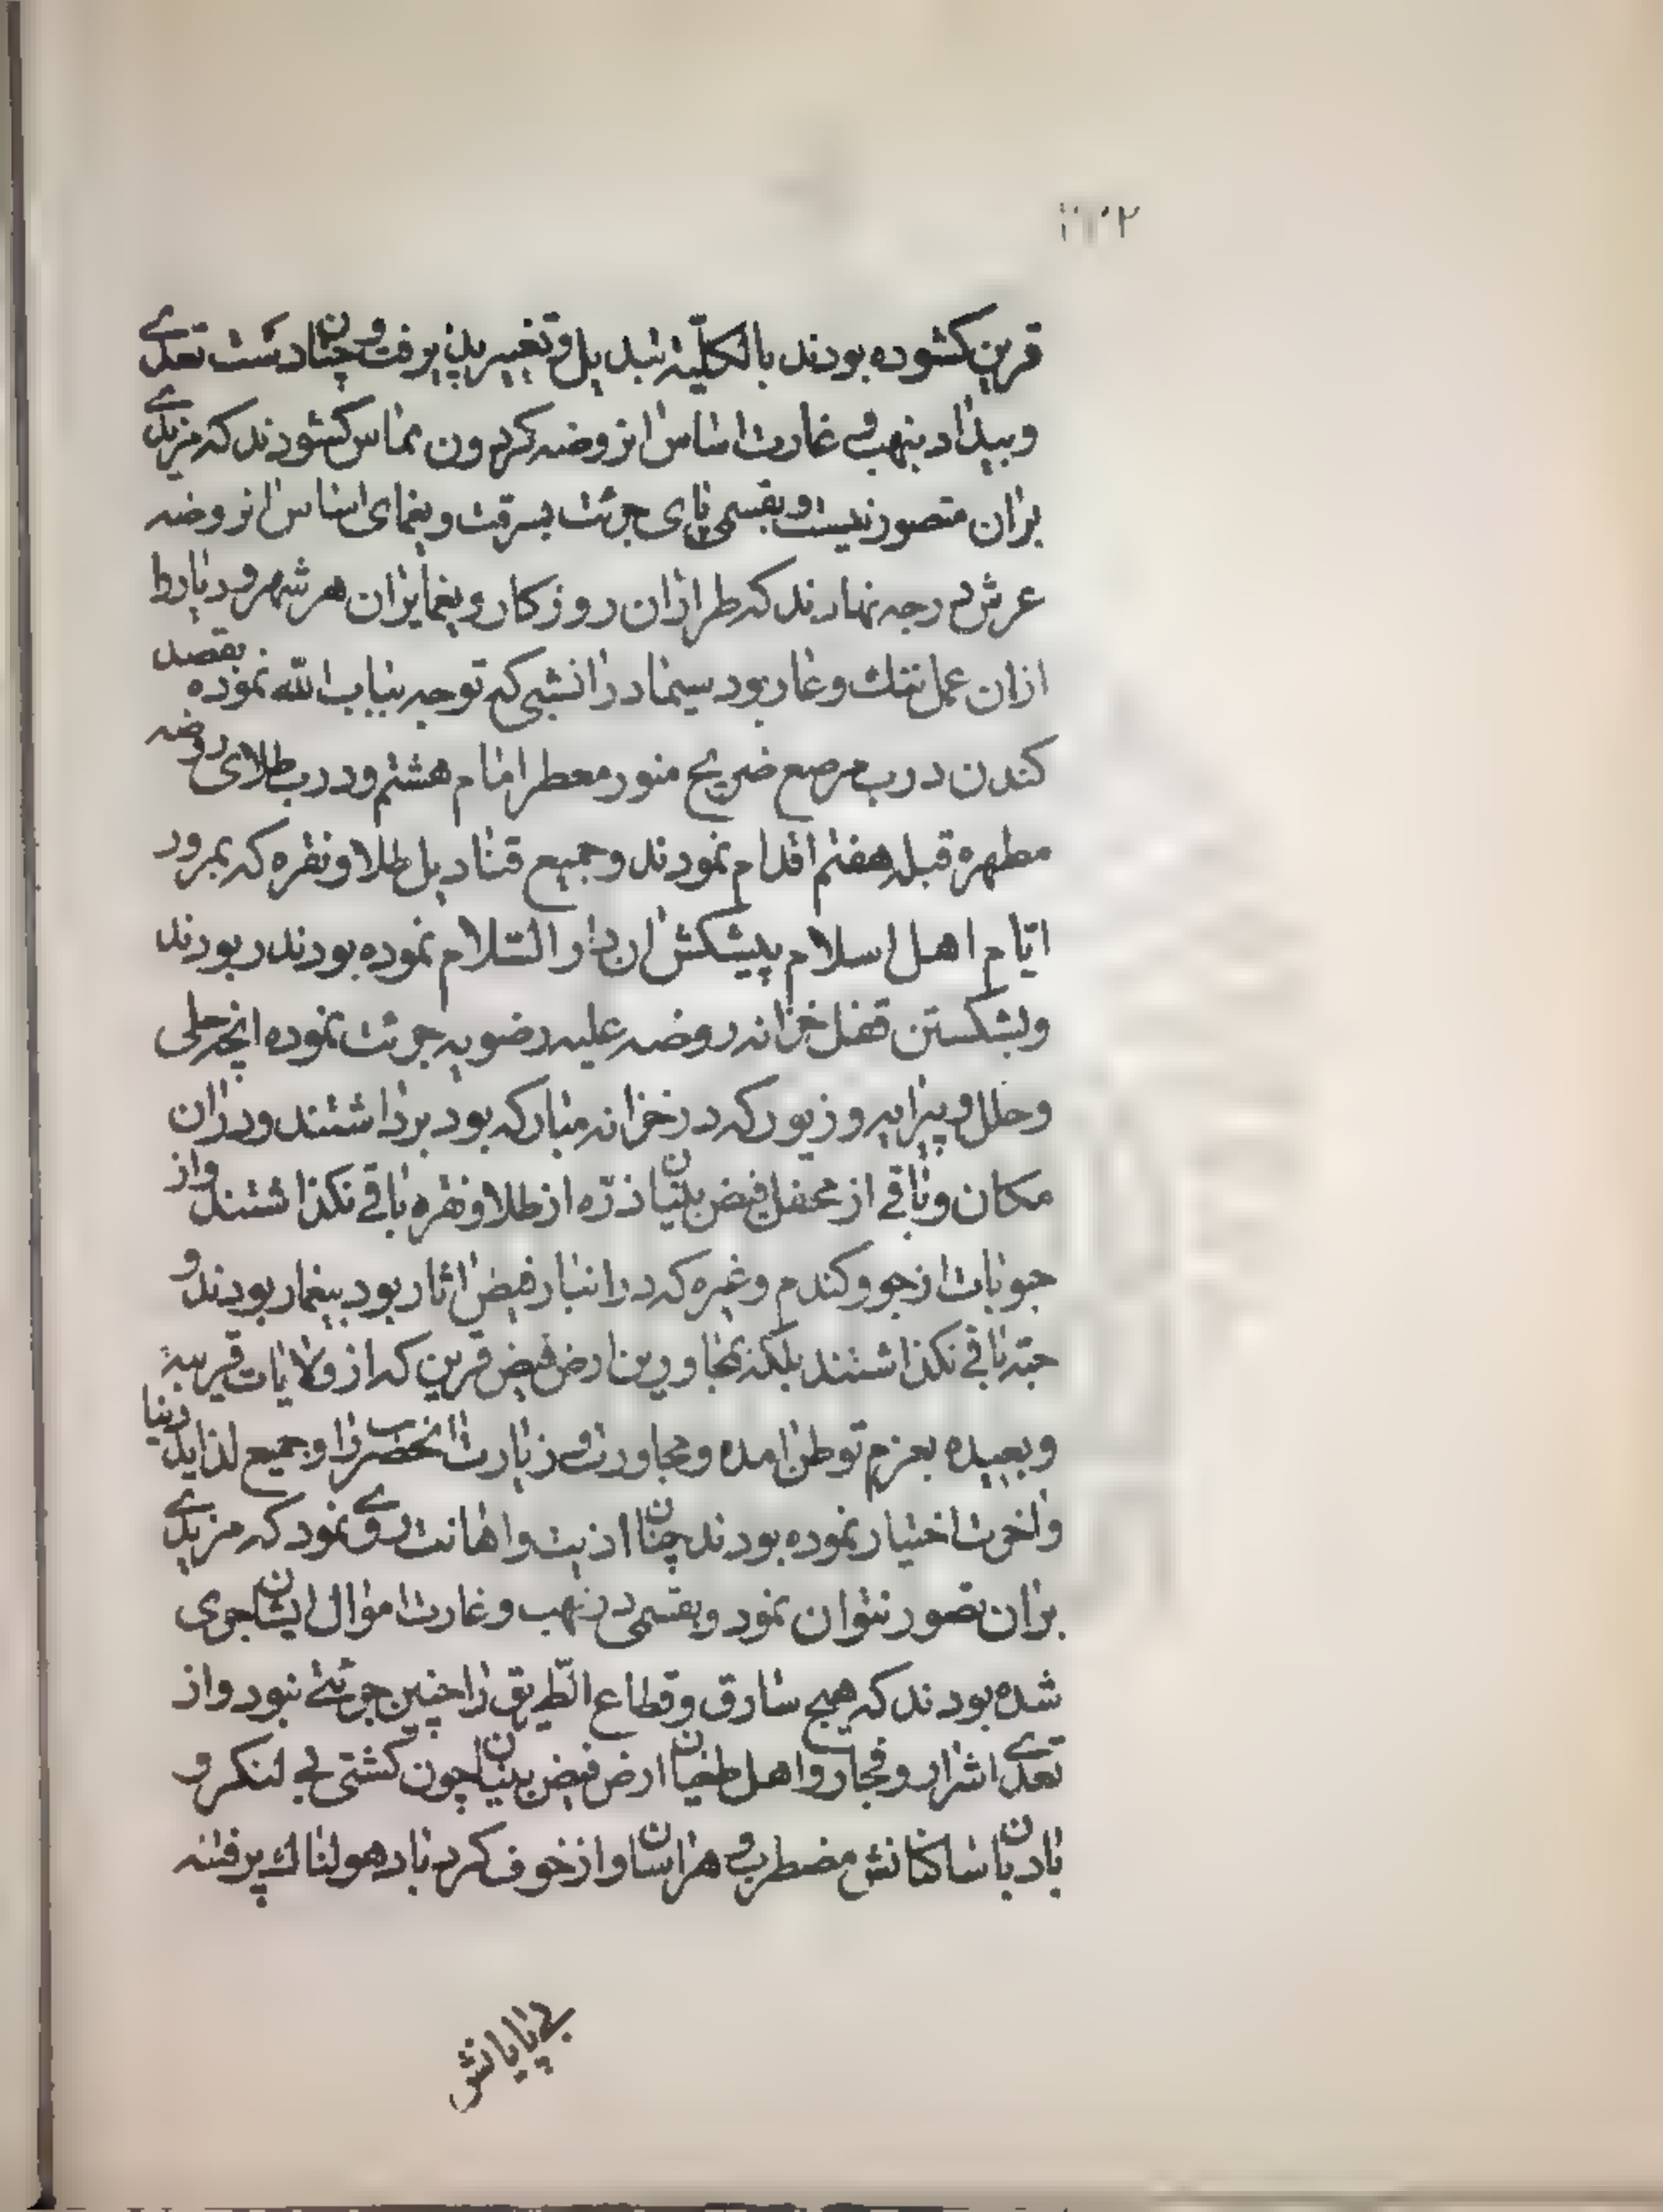 قرین کشوده بودند بالکلیّه تبدیل و تغییر پذیرفت و چنان دست تعدّے
و بیداد بنهب و غارت اساس انروضه کردون مماس کشودند که مزیدے
بران متصور نیست و بقسمی پای جرئت بسرقت و یغمای اساس انروضه
عرش درجه نهادند که طراران روزکار و یغمایران هر شهر و دیار را
ازان عمل ننك و عار بود سیما در انشبی که توجه بباب الله نموده بقصد
کندن درب مرصع ضریح منور معطر امام هشتم و درب طلای روضه
مطهره قبله هفتم اقدام نمودند و جمیع قنادیل طلا و نقره که بمرور
ایّام اهل اسلام پیشکش ان دار السّلام نموده بودند ربودند
و بشکستن قفل خزانه روضه علیه رضویه جرئت نموده انچه حلی
و حلل و پیرایه و زیور که در خزانه مبارکه بود برداشتند و دران
مکان و باقے از محفل فیض بنیان ذرّه از طلا و نقره باقے نکذاشتند و از
حوبات از جو و کندم و غیره که در انبار فیض اثار بود بیغما ربودند و
حبّه باقے نکذاشتند بلکه بمجاورین ارض فیض قرین که از ولایات قریبهٔ
و بعیده بعزم توطن امده و مجاورت و زیارت انحضرت را و جمیع لذاید دنیا
و اخرت اختیار نموده بودند چنان اذیت و اهانت روے نمود که مزیدے
بران تصور نتوان نمود و بقسمی در نهب و غارت اموال ایشان جری
شده بودند که هیچ سارق و قطاع الطّریق را چنین جرئتے نبود و از
تعدّے اشرار و فجّار و اهل طغیان ارض فیض بنیان چون کشتی بے لنکر و
بادبان ساکنانش مضطرب و هراسان و از خوف کرد باد هولناك پر فتنه
بے پایانش